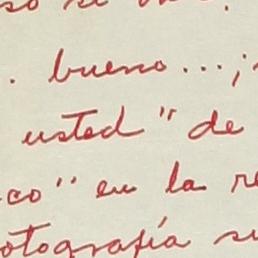 so si
. bueno...¡
usted" de
co" en la re
otografía su